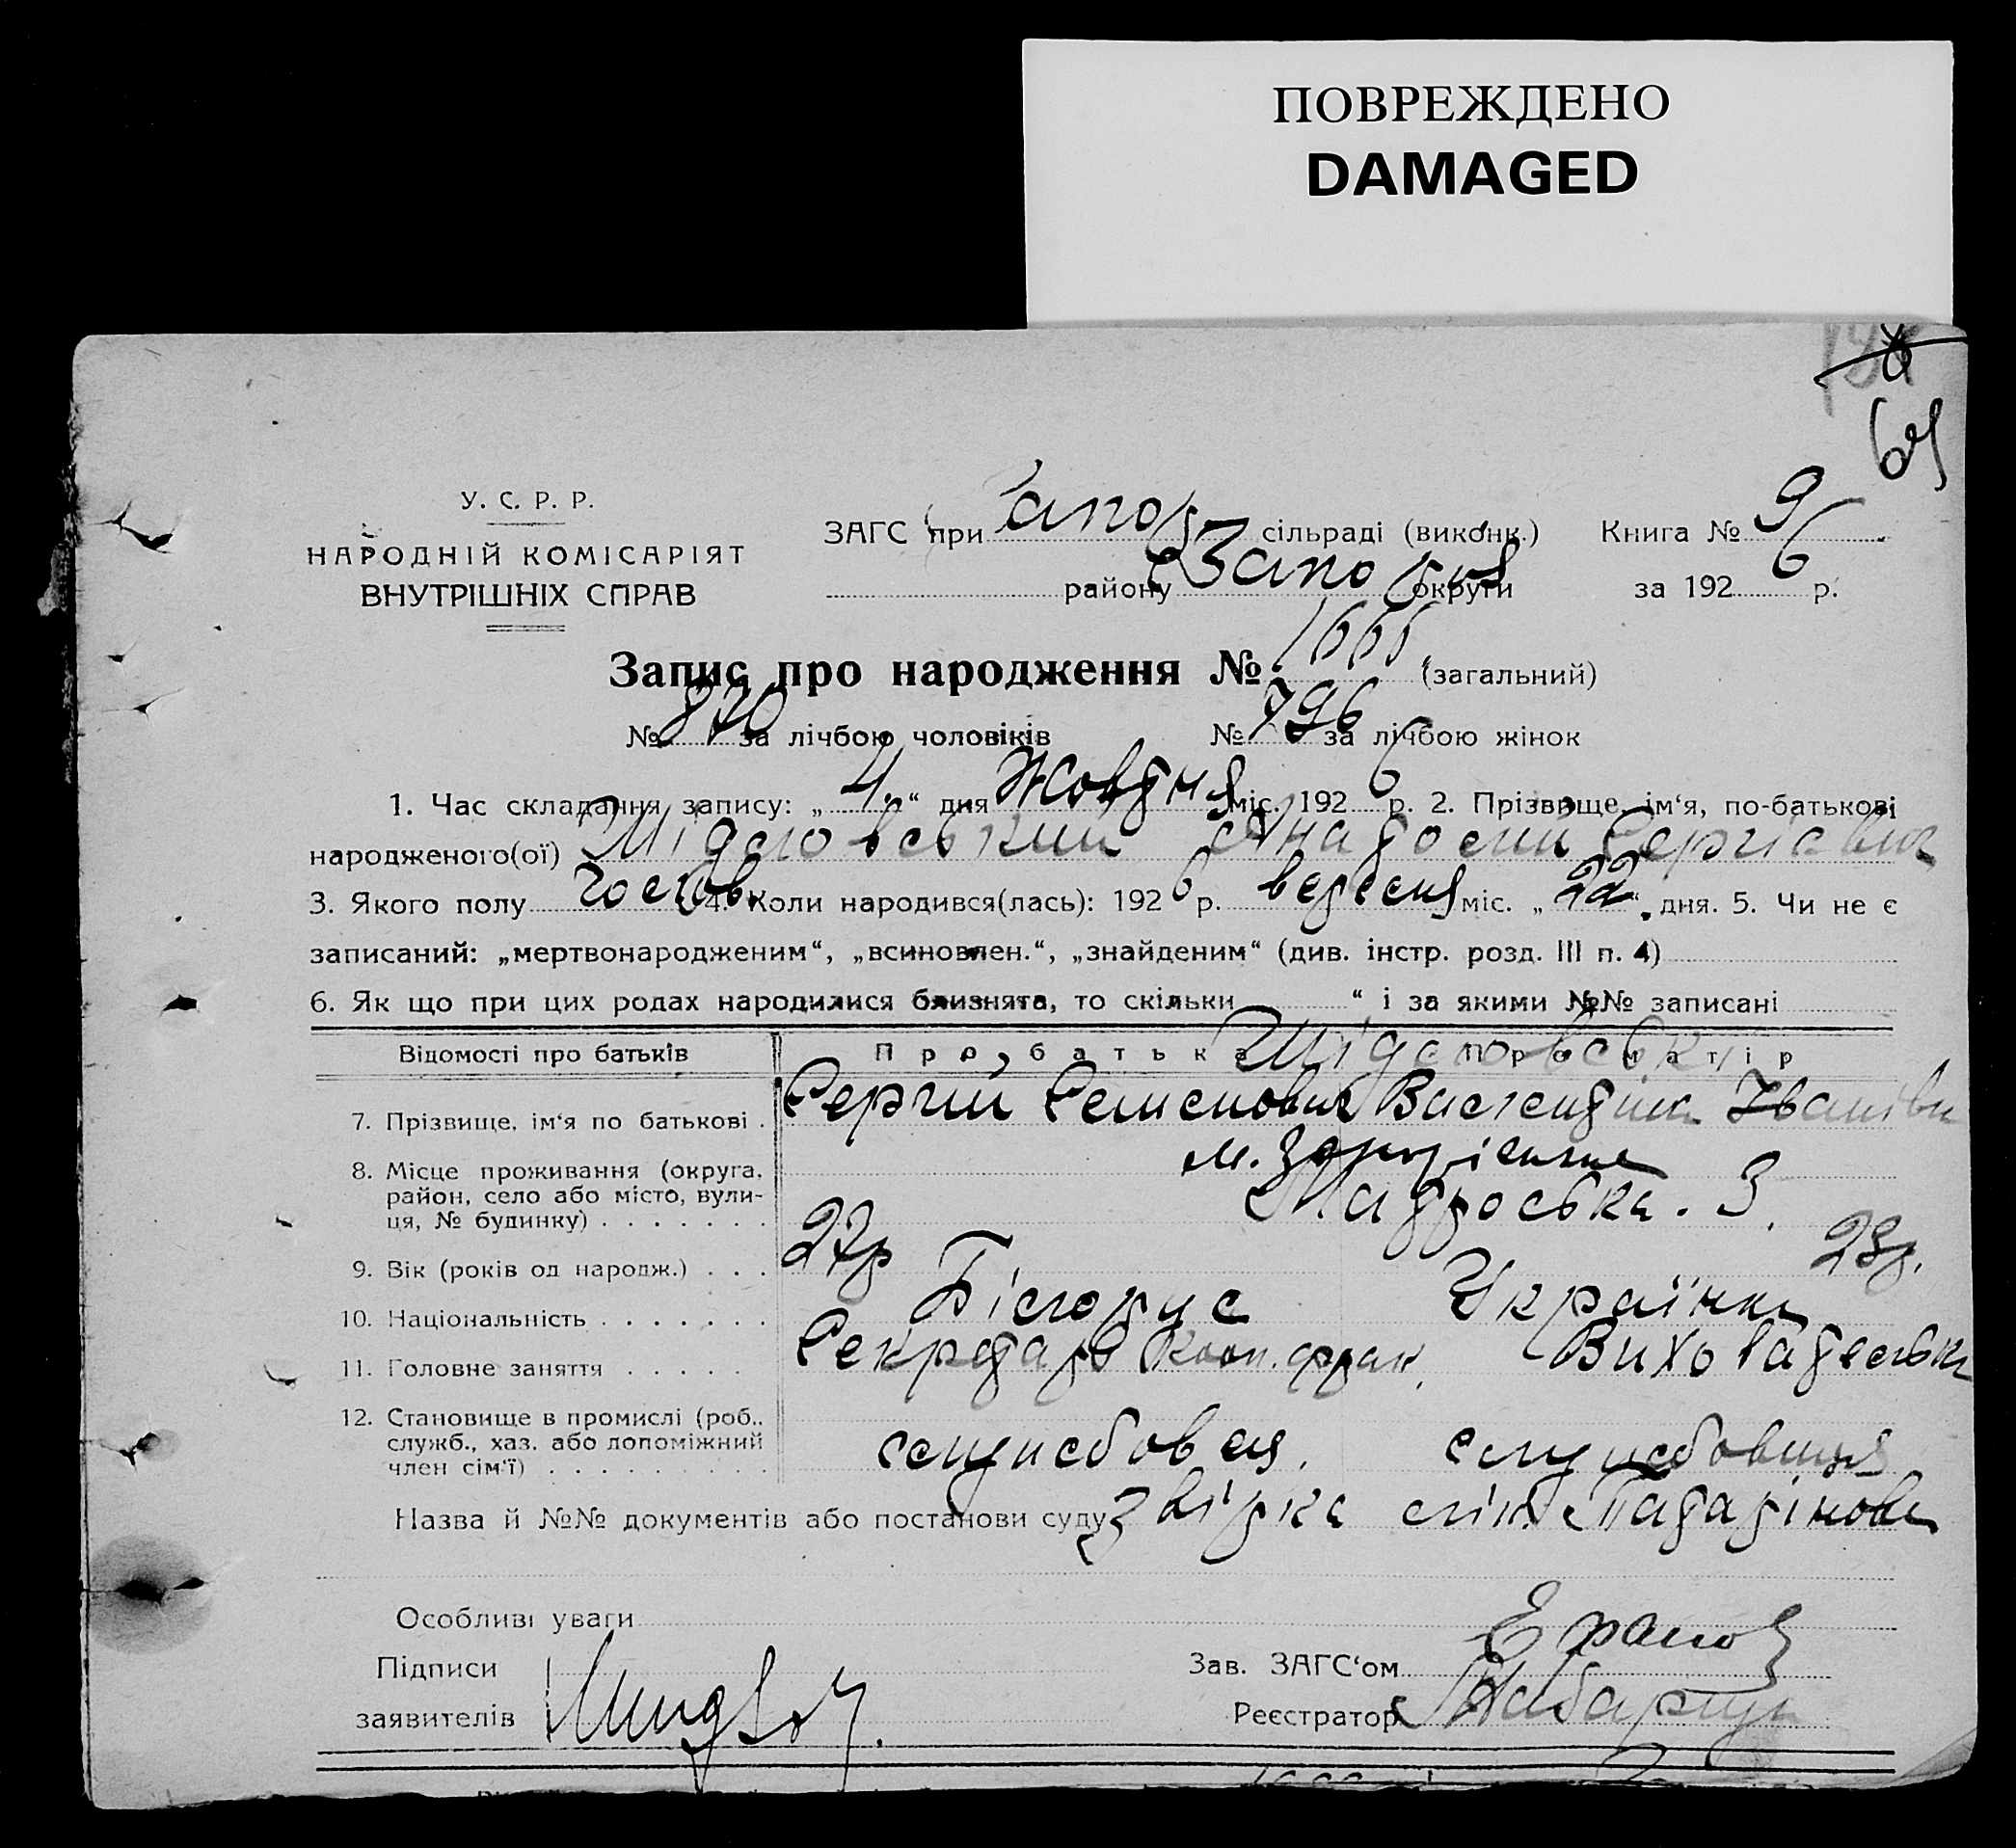 ПОВРЕЖДЕНО
DAMAGED
69
У. С. Р. Р.
НАРОДНІЙ КОМІСАРІЯТ
ВНУТРІШНІХ СПРАВ
ЗАГС при Запор сільраді (виконк.) Книга № 9
району Запор округи за 1926 р.
Запис про народження № 1666 (загальний)
№ 870 за лічбою чоловіків № 796 за лічбою жінок
1. Час складання запису: „4“ дня Жовтня міс. 1926 р. 2. Прізвище, ім‘я, по-батькові
народженого(ої) Шідловський Анатолій Сергієвич
3. Якого полу чолов. 4. Коли народився(лась): 1926 р. вересня міс. „22“ дня. 5. Чи не є
записаний: „мертвонародженим“, „всиновлен.“, „знайденим“ (див. інстр. розд. III п. 4)
6. Як що при цих родах народилися близнята, то скільки “ і за якими №№ записані
Відомості про батьків Про батька Про матір
Шідловськ
7. Прізвище, ім‘я по батькові . Сергій Семенович Валентина Іванівн
8. Місце проживання (округа, район, село або місто, вулиця, № будинку) . . . . . . . м. Запоріжже
Матроська. 3.
9. Вік (років од народж.) . . . 27р 23р.
10. Національність . . . . . . . Білорус Українка
11. Головне заняття . . . . . Секретарь Кооп. Вихователька
12. Становище в промислі (роб., служб., хаз. або допоміжний член сім‘ї) . . . . . . . . . службовця. службовиця
Назва й №№ документів або постанови суду звірка лік.
Особливі уваги
Підписи
заявителів
Зав. ЗАГС‘ом
Реєстратор